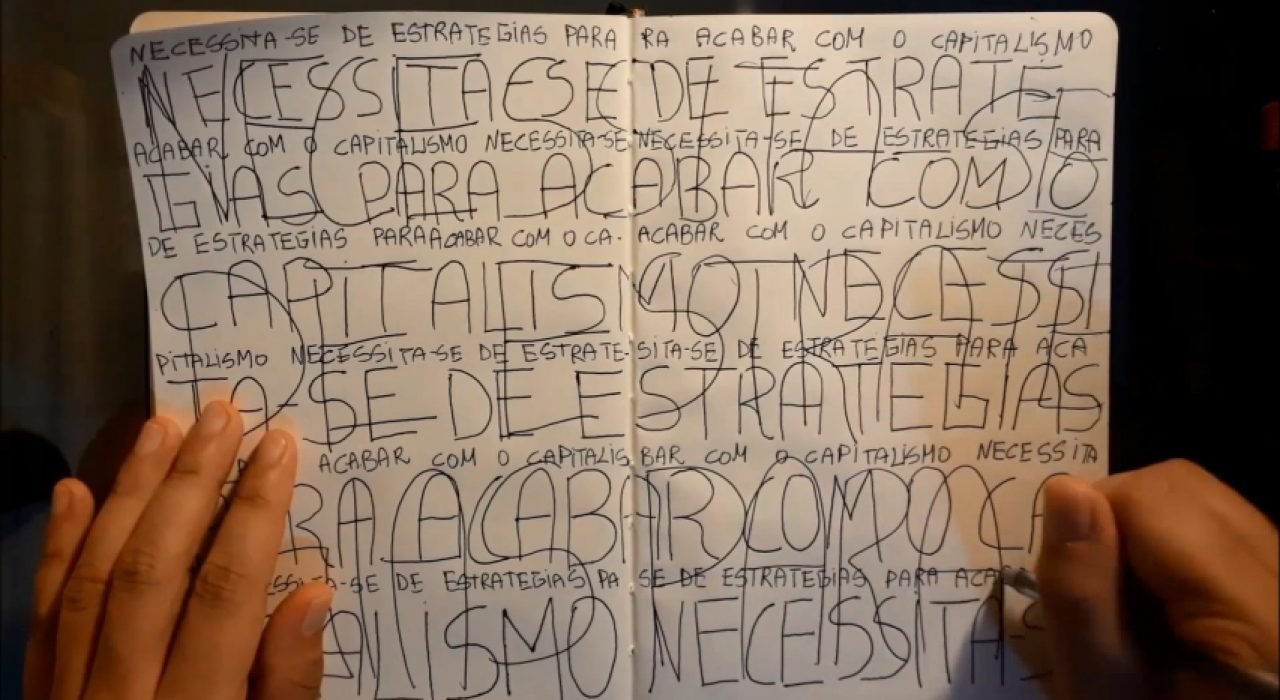 NECESSITA-SE DE ESTRATEGIAS PARA RA ACABAR COM O CAPITALISMO
NECESSITA-SE DE ESTRATE
ACABAR COM O CAPITALISMO NECESSITA-SE NECESSITA-SE DE ESTRATEGIAS PARA
GIAS PARA ACABAR COM O
DE ESTRATEGIAS PARA ACABAR COM O CA- ACABAR COM O CAPITALISMO NECES
CAPITALISMO NECESSI
PITALISMO NECESSITA-SE DE ESTRATE- SITA-SE DE ESTRATEGIAS PARA ACA
TA-SE DE ESTRATEGIAS
ACABAR COM O CAPITALIS BAR COM O CAPITALISMO NECESSITA
RA ACABAR COM O CA
SSITA-SE DE ESTRATEGIAS PA SE DE ESTRATEGIAS PARA ACA
ALISMO NECESSITA-S